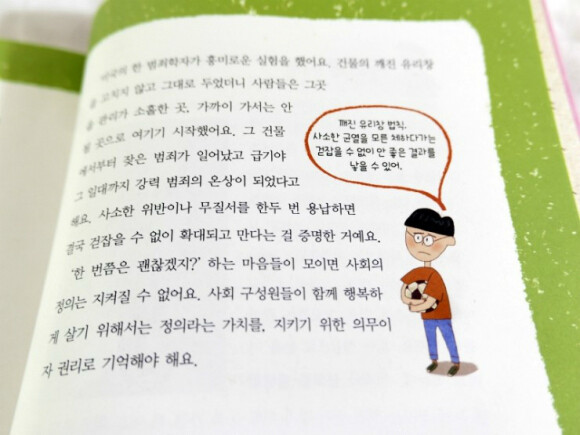 미국의 한 범죄학자가 흥미로운 실험을 했어요. 건물의 깨진 유리창
을 고치지 않고 그대로 두었더니 사람들은 그곳
을 관리가 소홀한 곳, 가까이 가서는 안
될 곳으로 여기기 시작했어요. 그 건물
에서부터 잦은 범죄가 일어났고 급기야
그 일대까지 강력 범죄의 온상이 되었다고
해요. 사소한 위반이나 무질서를 한두 번 용납하면
결국 걷잡을 수 없이 확대되고 만다는 걸 증명한 거예요.
‘한 번쯤은 괜찮겠지?’ 하는 마음들이 모이면 사회의
정의는 지켜질 수 없어요. 사회 구성원들이 함께 행복하
게 살기 위해서는 정의라는 가치를, 지키기 위한 의무이
자 권리로 기억해야 해요.
깨진 유리창 법칙.
사소한 균열을 모른 체하다가는
걷잡을 수 없이 안 좋은 결과를
낳을 수 있어.